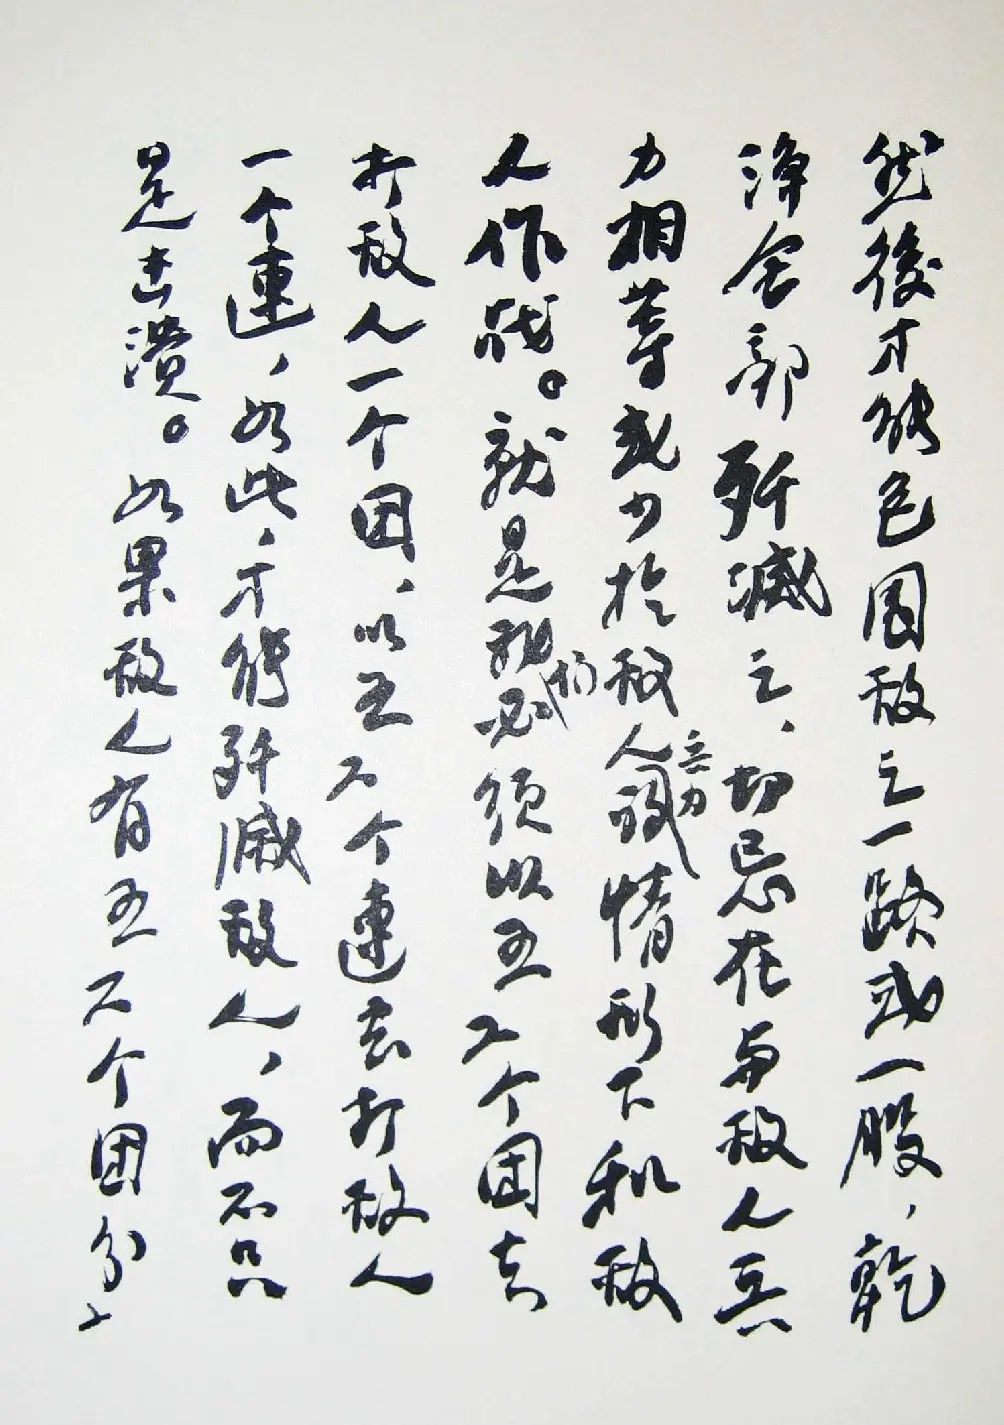 然後才能包围敌之一路或一股，乾
淨全部歼滅之，切忌在与敌人兵
力相等或少於敌人兵力情形下和敌
人作战。就是我们必须以五六个团去
打敌人一个团，以五六个连去打敌人
一个連，如此，才能歼滅敌人，而不只
是击溃。如果敌人有五六个团分